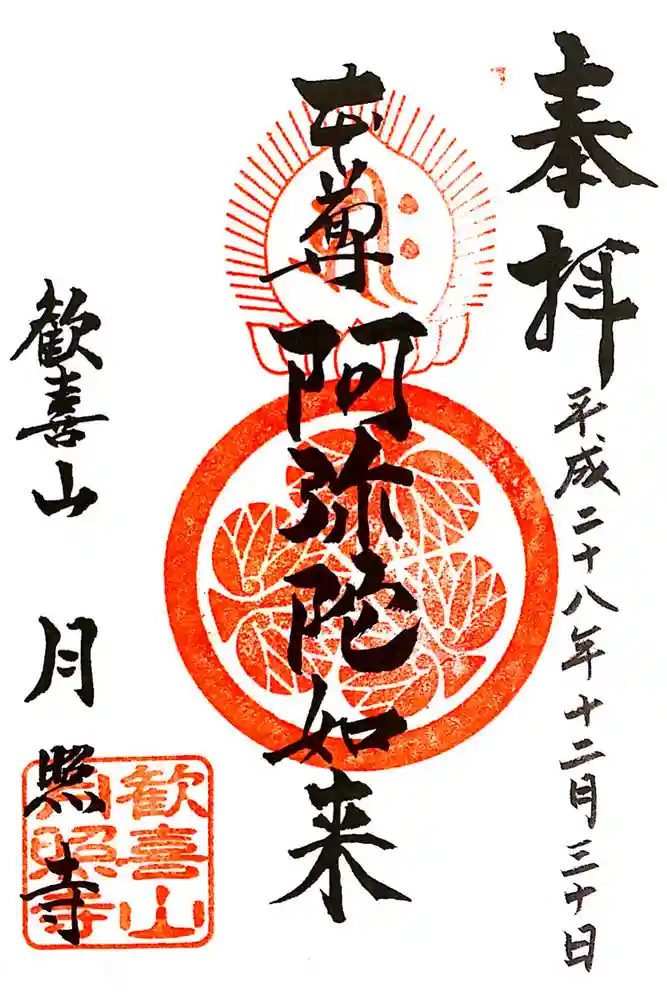 奉拝
平成二十八年十二月三十日
本尊阿弥陀如来
歓喜山 月照寺
歓喜山
月照寺